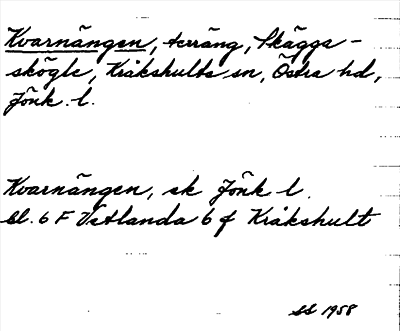 Kvarnängen, terräng, Skäggs-
skögle, Kråkshults sn, Östra hd,
Jönk. l.
Kvarnängen, ek Jönk l.
bl. 6 F Vetlanda 6 f Kråkshult
SS 1958